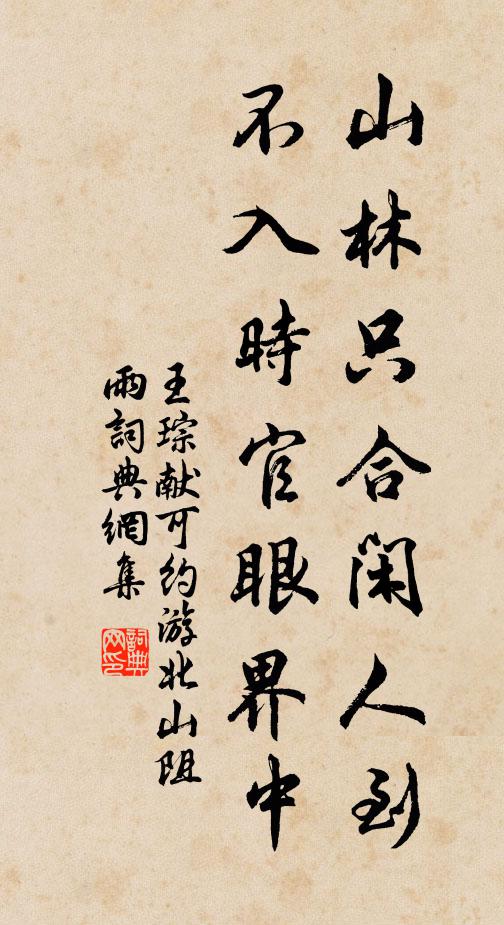 山林只合闲人到
不入時官眼界中
王琮献可约游北山阻
雨詞典網集
詞典
网印